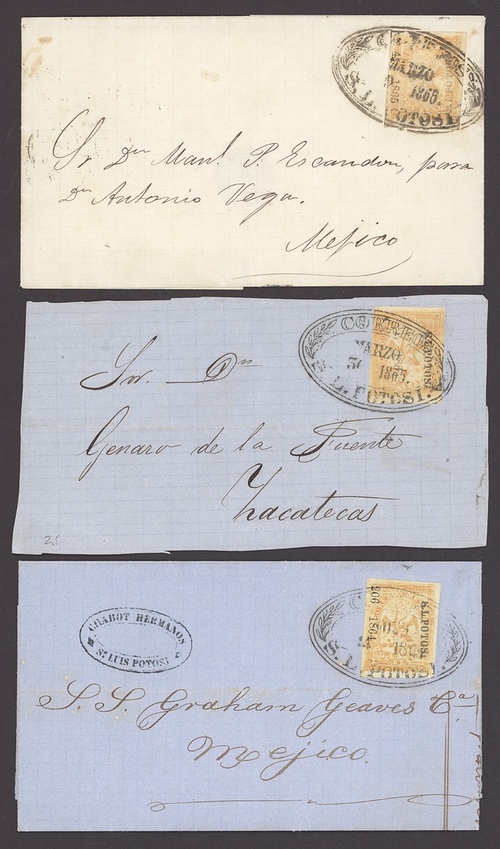 MARZO
1865.
S. L. POTOSI.
1865
Sr Dn Manl P. Escandon, para
Dn Antonio Vega.
Mejico
CORREO
MARZO
1865.
S. L. POTOSI.
S.L.POTOSI
Sor. Dn
Genaro de la Fuente
Zacatecas
25
CHABOT HERMANOS
Sn LUIS POTOSI
206 1864
S.L.POTOSI
S. L. POTOSI.
S. S. Graham Geaves Ca
Mejico.